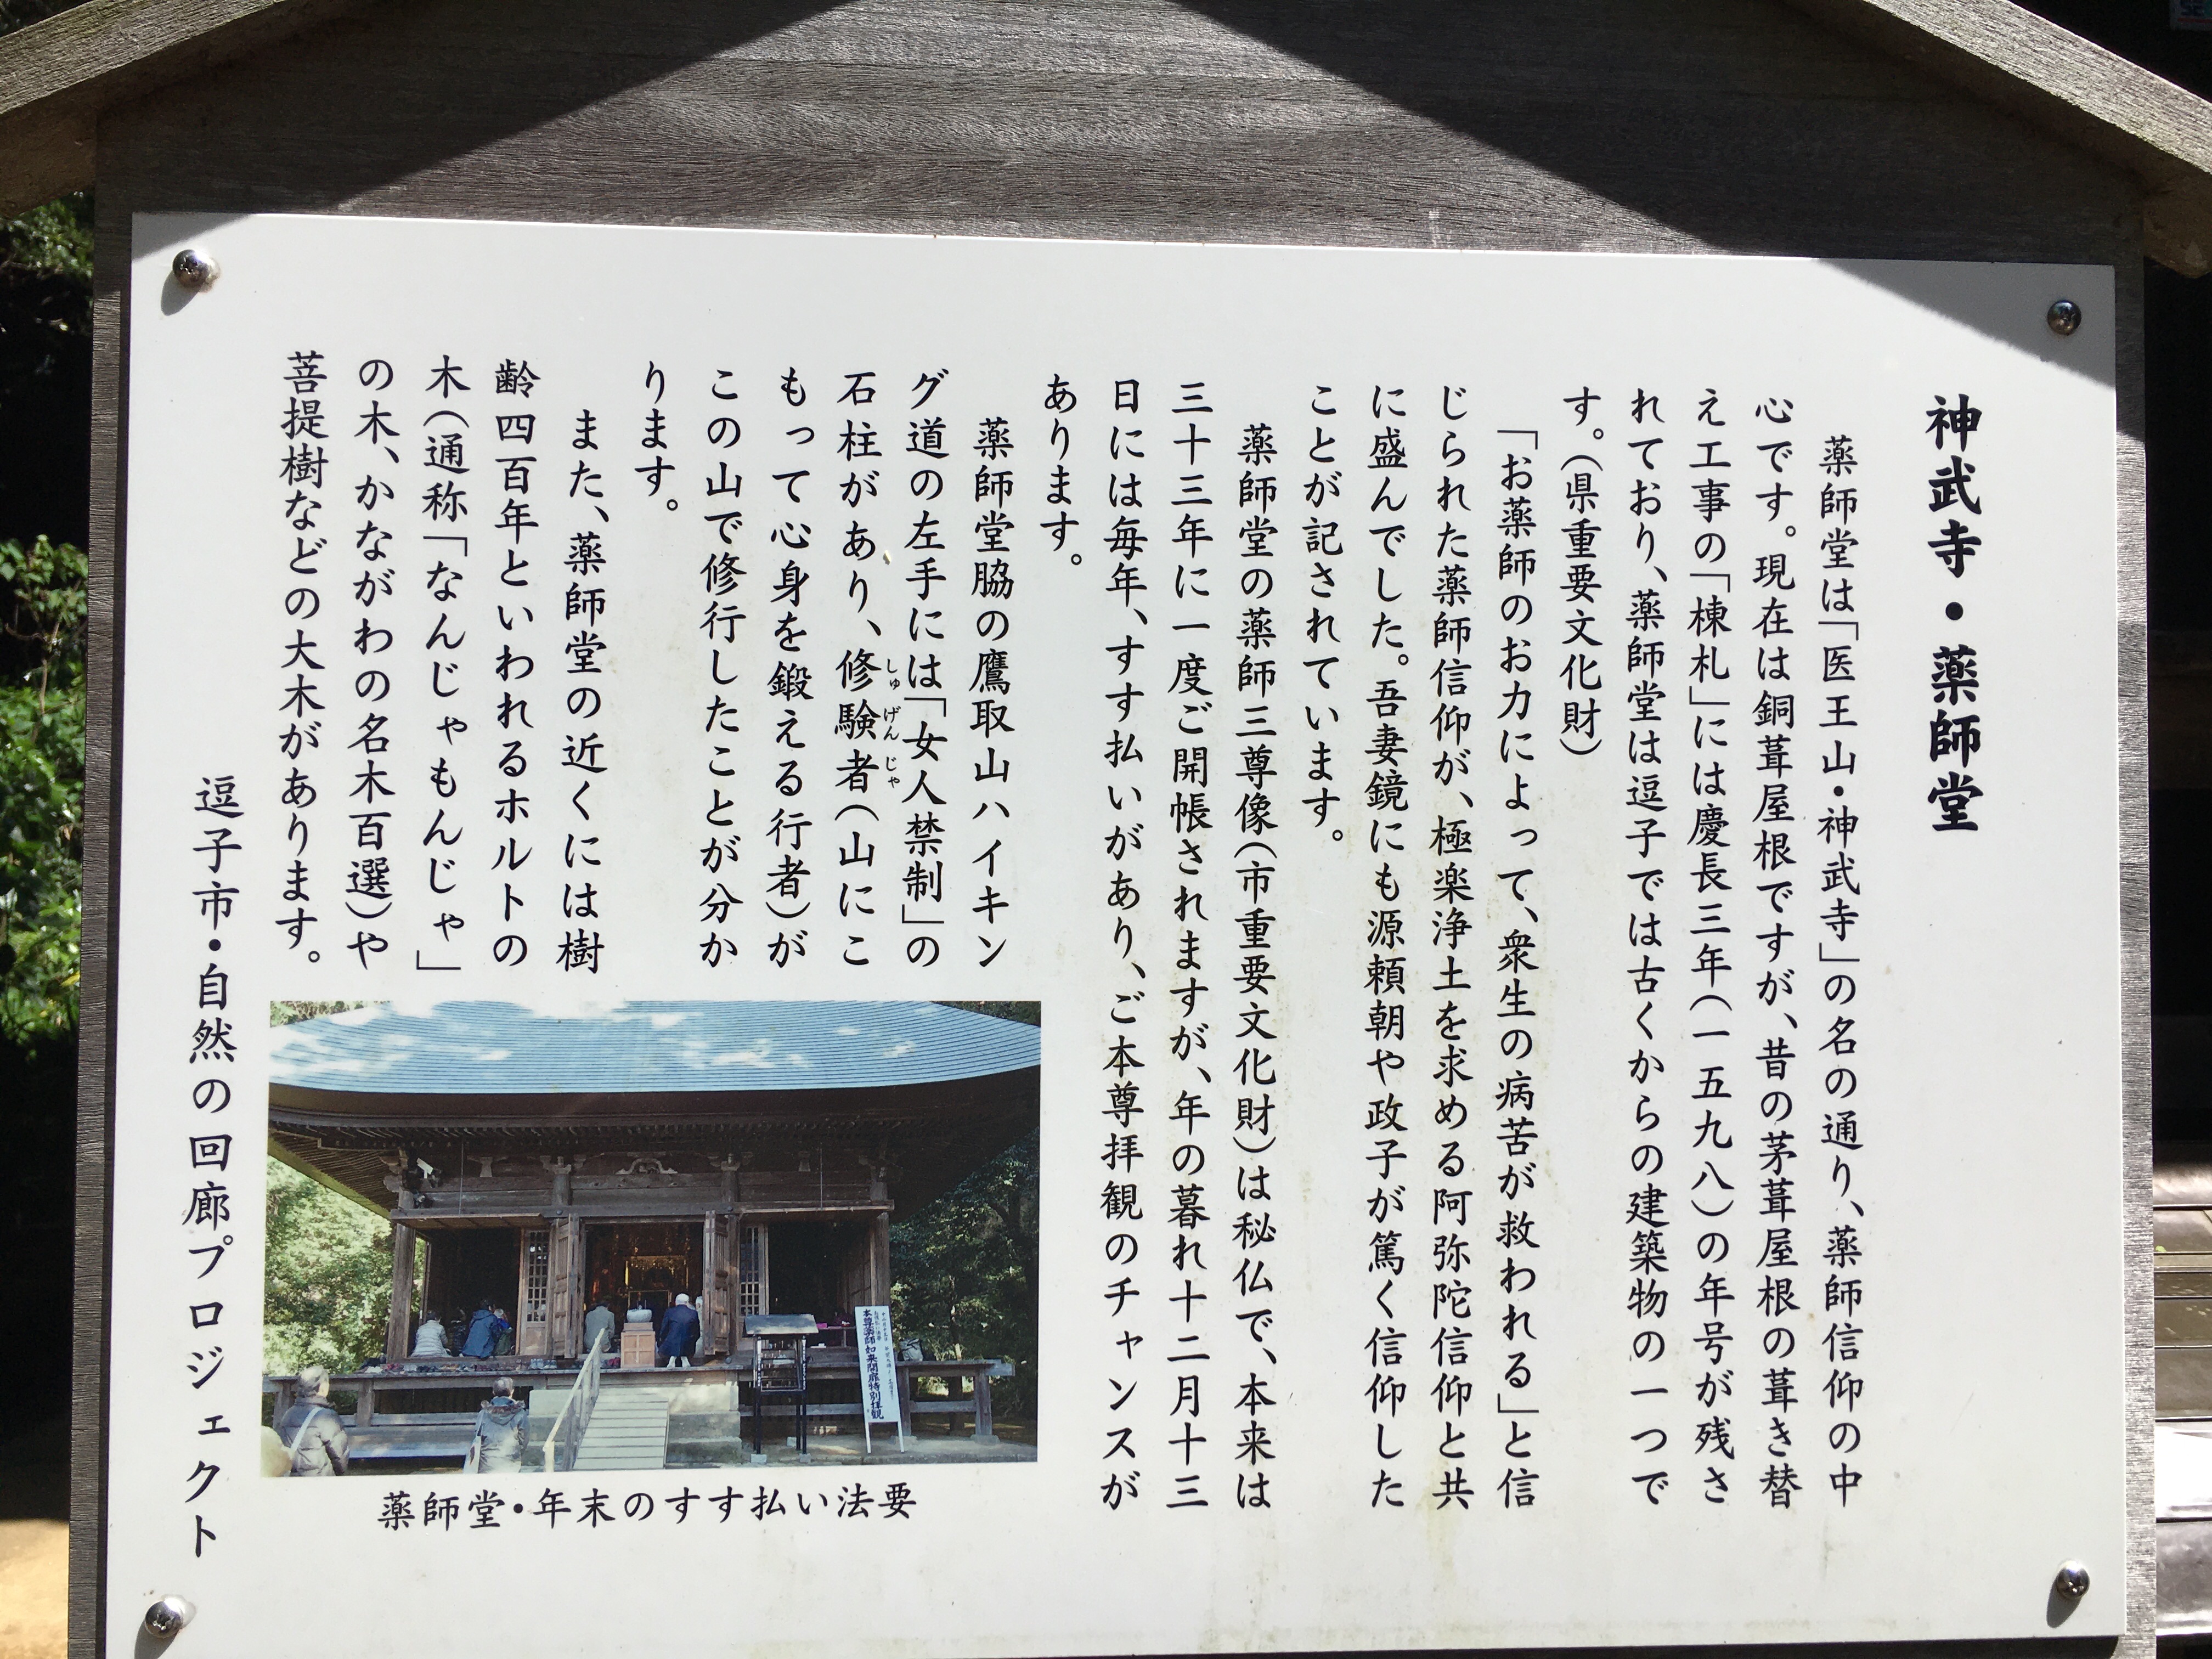 神武寺・薬師堂
薬師堂は「医王山・神武寺」の名の通り、薬師信仰の中
心です。現在は銅葺屋根ですが、昔の茅葺屋根の葺き替
え工事の「棟札」には慶長三年(一五九八)の年号が残さ
れており、薬師堂は逗子では古くからの建築物の一つで
す。(県重要文化財)
「お薬師のお力によって、衆生の病苦が救われる」と信
じられた薬師信仰が、極楽浄土を求める阿弥陀信仰と共
に盛んでした。吾妻鏡にも源頼朝や政子が篤く信仰した
ことが記されています。
薬師堂の薬師三尊像(市重要文化財)は秘仏で、本来は
三十三年に一度ご開帳されますが、年の暮れ十二月十三
日には毎年、すす払いがあり、ご本尊拝観のチャンスが
あります。
薬師堂脇の鷹取山ハイキン
グ道の左手には「女人禁制」の
石柱があり、修験者(山にこ
しゅげんじゃ
もって心身を鍛える行者)が
この山で修行したことが分か
ります。
また、薬師堂の近くには樹
齢四百年といわれるホルトの
木(通称「なんじゃもんじゃ」
の木、かながわの名木百選)や
菩提樹などの大木があります。
逗子市・自然の回廊プロジェクト
本尊薬師如来開扉特別拝観
薬師堂・年末のすす払い法要